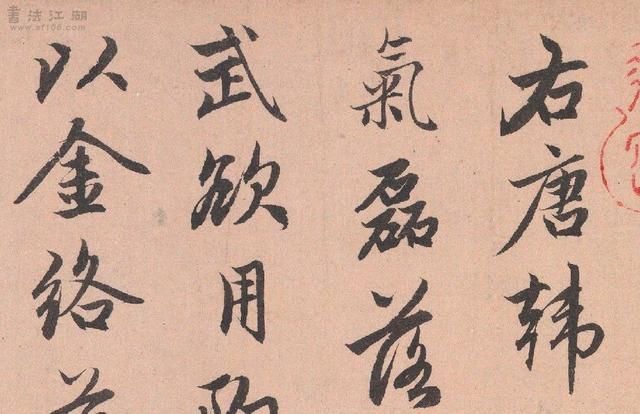 右唐韓
氣磊落
武欲用
以金絡
書法江湖
www.sf108.com